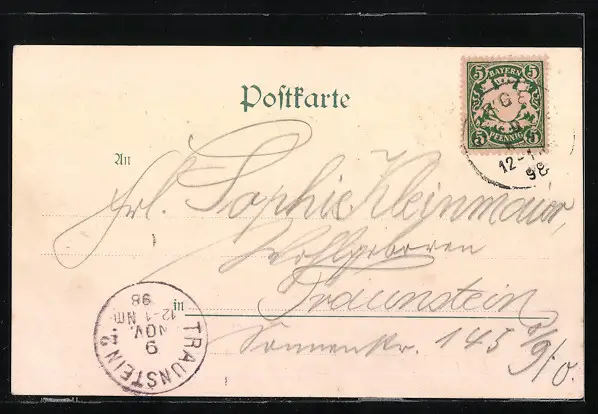 Postkarte
5 BAYERN 5
5 PFENNIG 5
12-1
98
An
Frl. Sophie Kleinmaier,
Wohlgeboren
in Traunstein
Sonnenstr. 145
TRAUNSTEIN 2.
9
NOV.
12-1 Nm
98